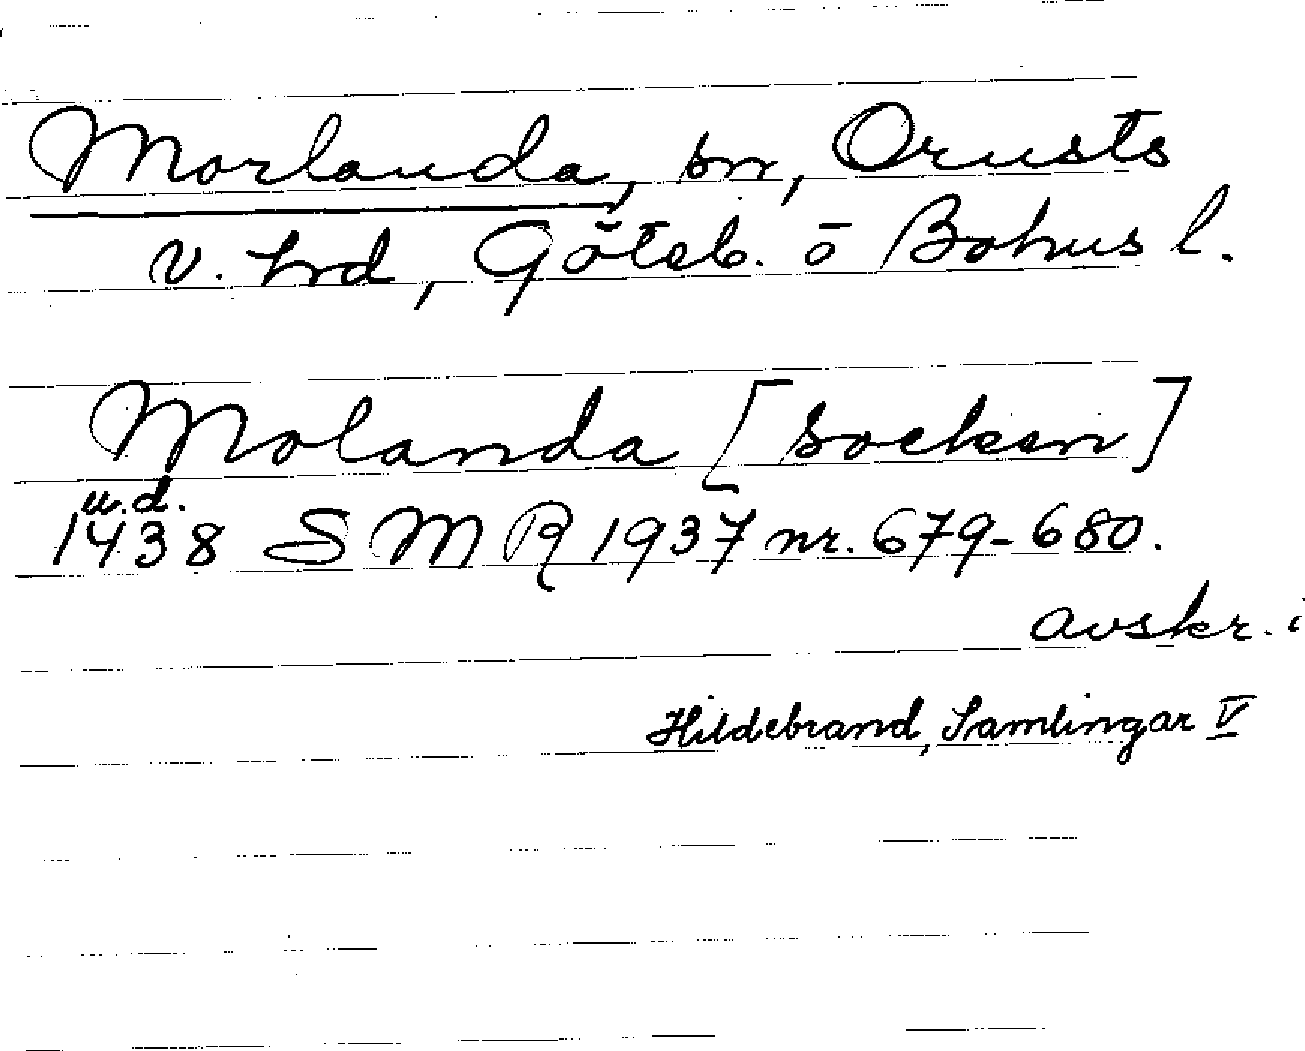 Morlanda, sn, Orusts
v. hrd, Göteb. o Bohus l.
Molanda [socken]
u.d.
1438 SMR 1937 nr. 679-680.
avskr. i
Hildebrand, Samlingar V